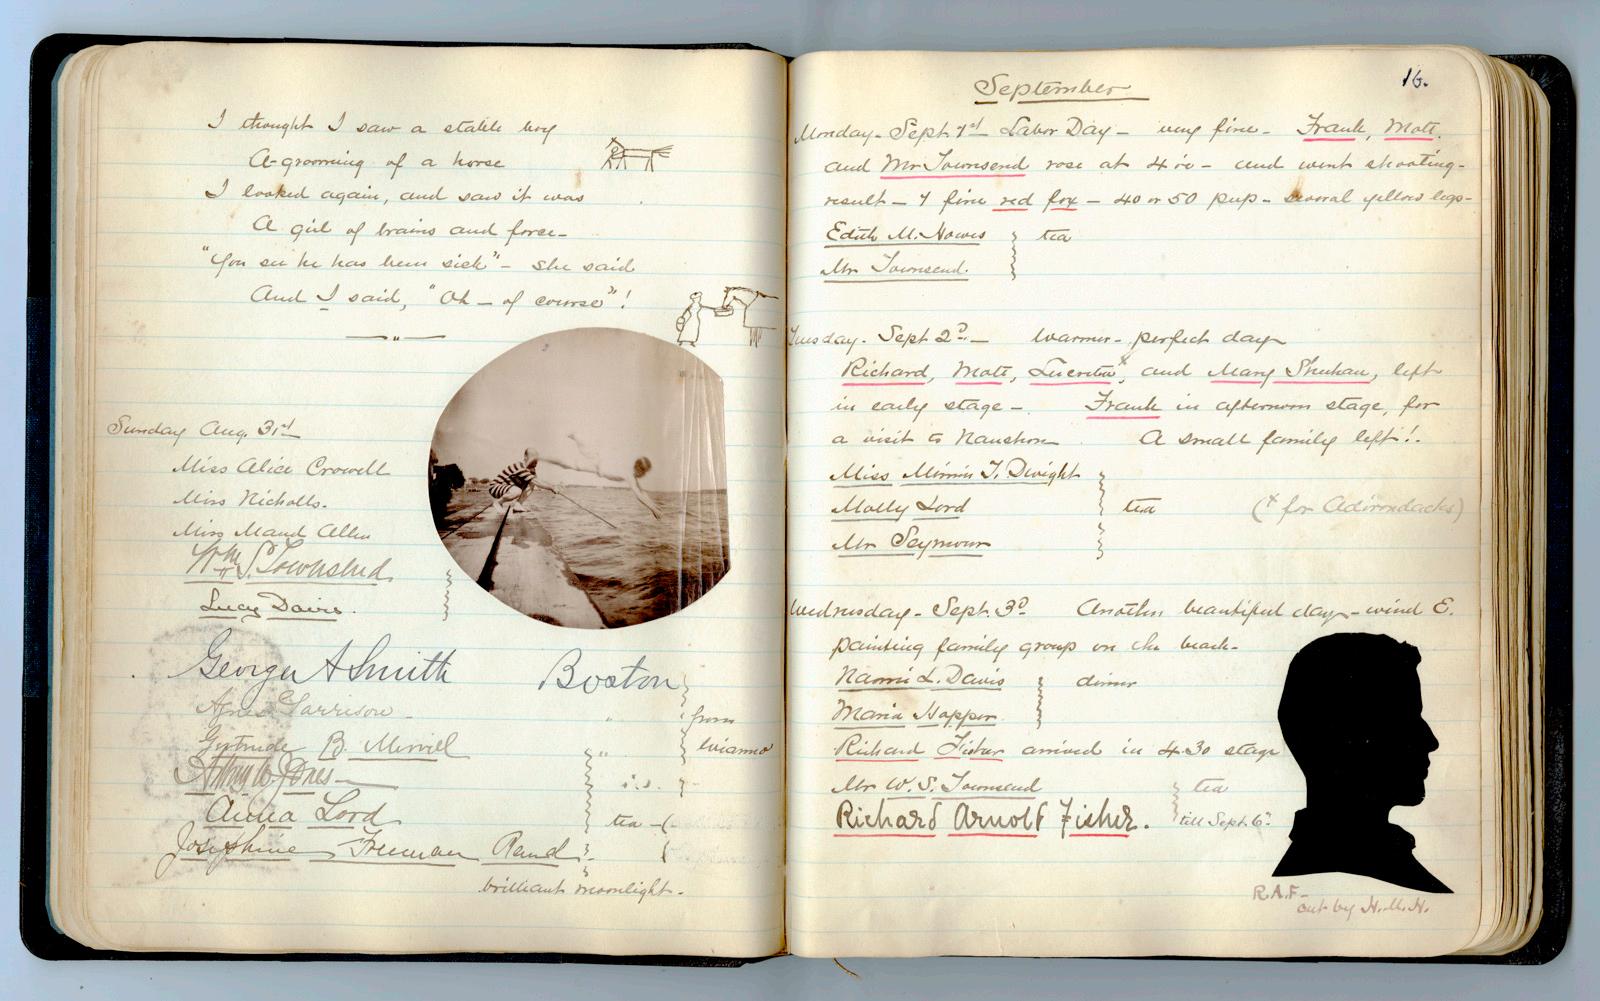 I thought I saw a stable boy
A-grooming of a horse
I looked again, and saw it was
A girl of brains and force—
"You see he has been sick" – she said
And I said, "Oh – of course"!
Sunday Aug. 31st
Miss Alice Crowell
Miss Nicholls.
Miss Maud Allen
Wm S. Townshend
Lucy Davis.
George A Smith Boston
Agnes Garrison " from
Gertrude B. Merrill " Wianno
Jones
Anna Lord tea
Josephine Freeman Rand
brilliant moonlight.
16.
September
Monday - Sept 1st Labor Day – very fine - Frank, Mott,
and Mr Townsend rose at 4 – and went shooting –
result – 1 fine red fox – 40 or 50 peep – several yellow legs –
Edith M. Howes tea
Mr Townsend.
Tuesday - Sept 2d – Warmer - perfect day
Richard, Mott, Lucretia x, and Mary Shuhan, left
in early stage – Frank in afternoon stage, for
a visit to Naushon A small family left!.
Miss Minnie T. Dwight
Molly Lord tea (x for Adirondacks)
Mr Seymour
Wednesday - Sept. 3d Another beautiful day – wind E.
painting family group on the beach –
Naomi L. Davis dinner
Maria Hopper.
Richard Fisher arrived in 4.30 stage
Mr W. S. Townsend tea
Richard Arnold Fisher. till Sept. 6th
R.A.F –
cut by H.M.H.